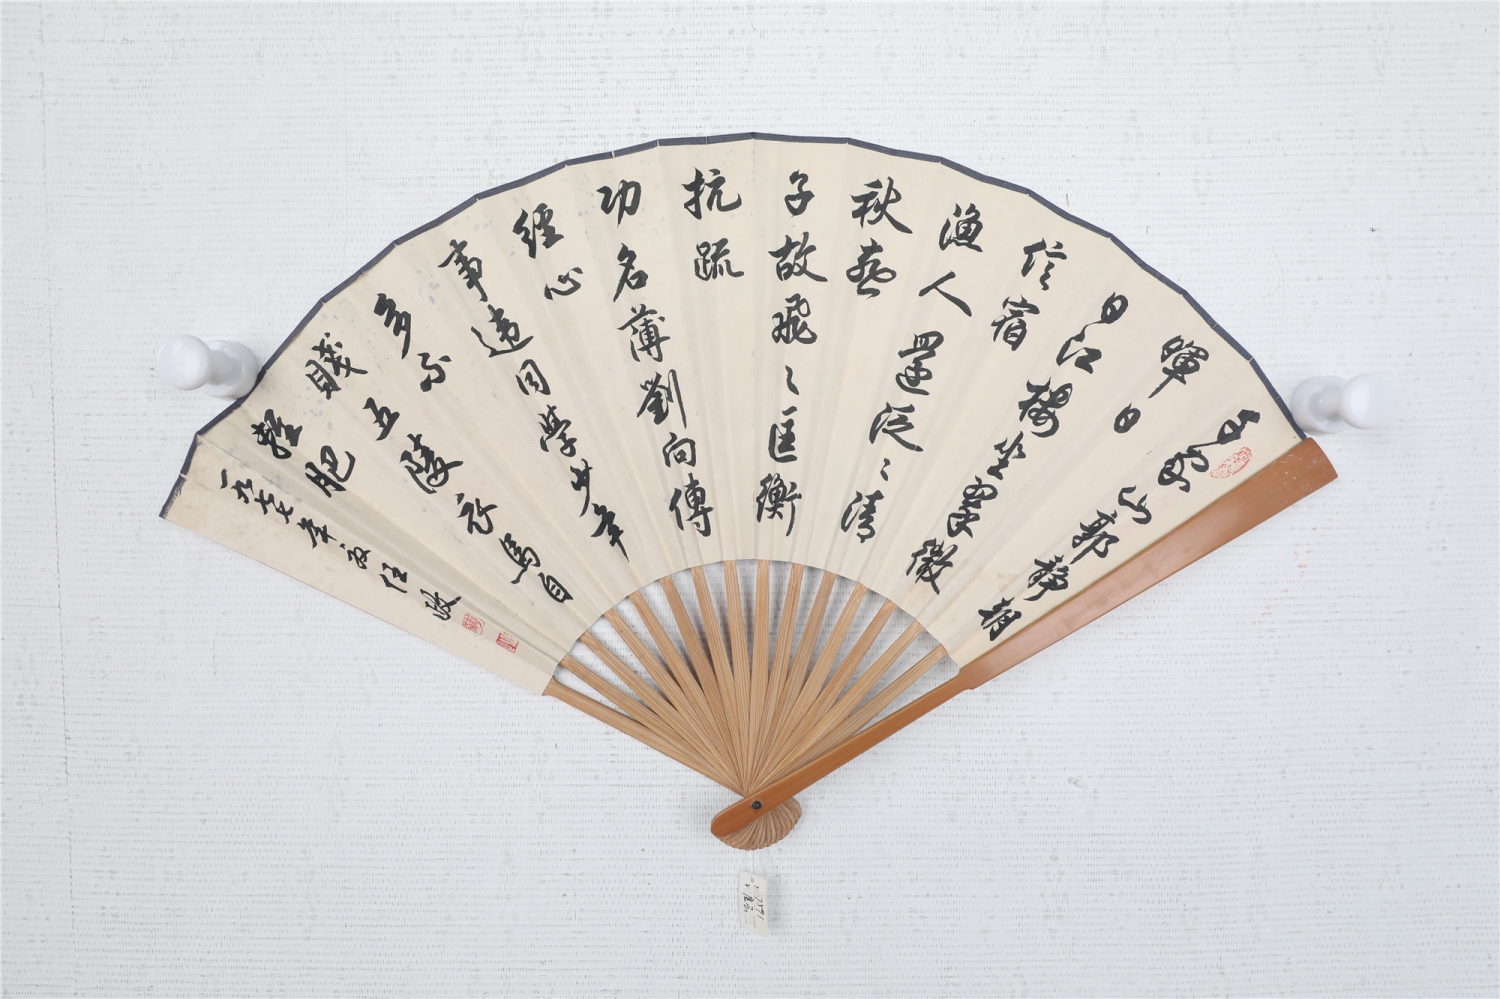 千家山郭静朝
暉日
日江樓坐翠微
信宿
漁人還泛〻清
秋燕
子故飛〻匡衡
抗疏
功名薄劉向傳
經心
事違同學少年
多不
賤五陵衣馬自
輕肥
一九七七年 任政